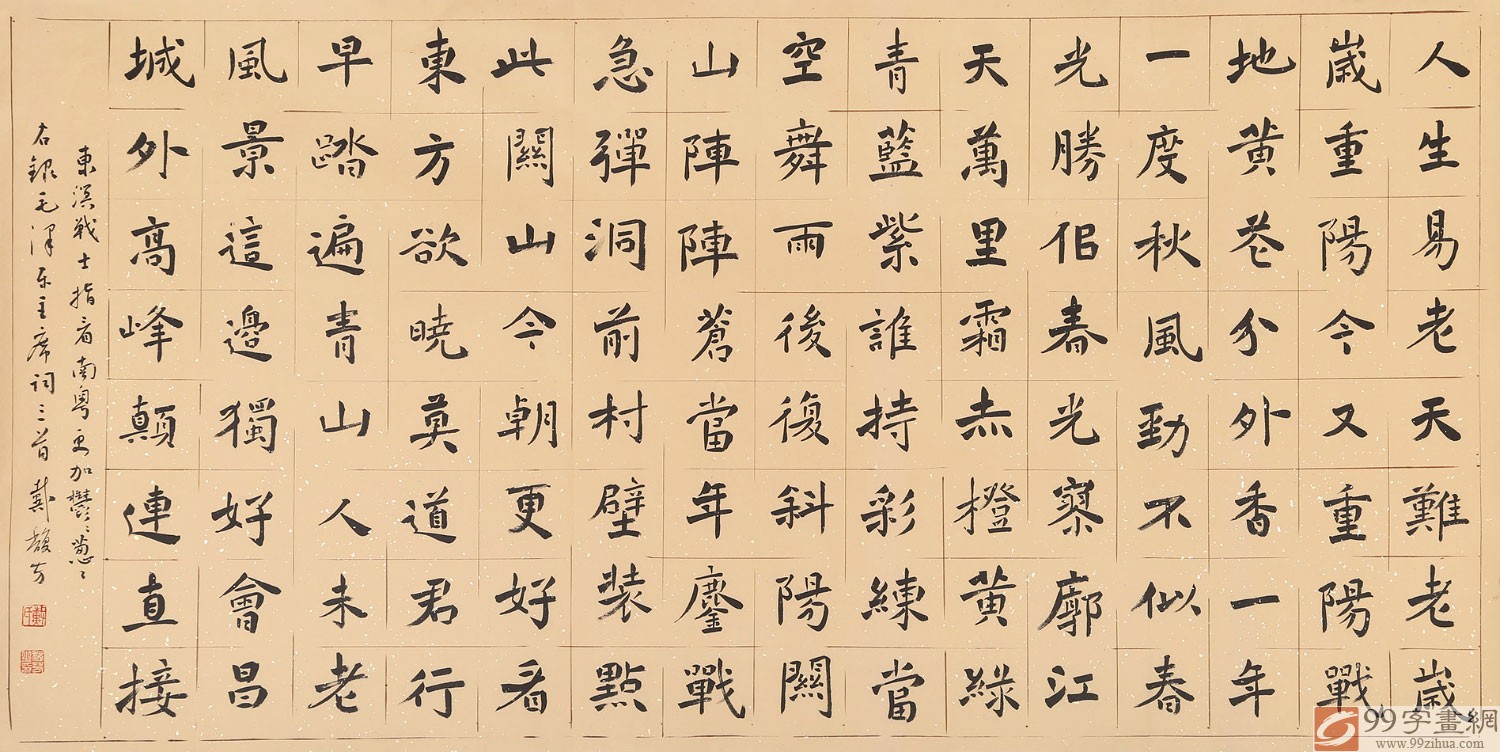 人生易老天難老歲
歲重陽今又重陽戰
地黃花分外香一年
一度秋風勁不似春
光勝佀春光寥廓江
天萬里霜赤橙黃綠
青藍紫誰持彩練當
空舞雨後復斜陽關
山陣陣蒼當年鏖戰
急彈洞前村壁裝點
此關山今朝更好看
東方欲曉莫道君行
早踏遍青山人未老
風景這邊獨好會昌
城外高峰顛連直接
東溟戰士指看南粵更加鬱〻蔥〻
右錄毛澤東主席詞三首 戴馥
99字畫網
www.99zihua.com